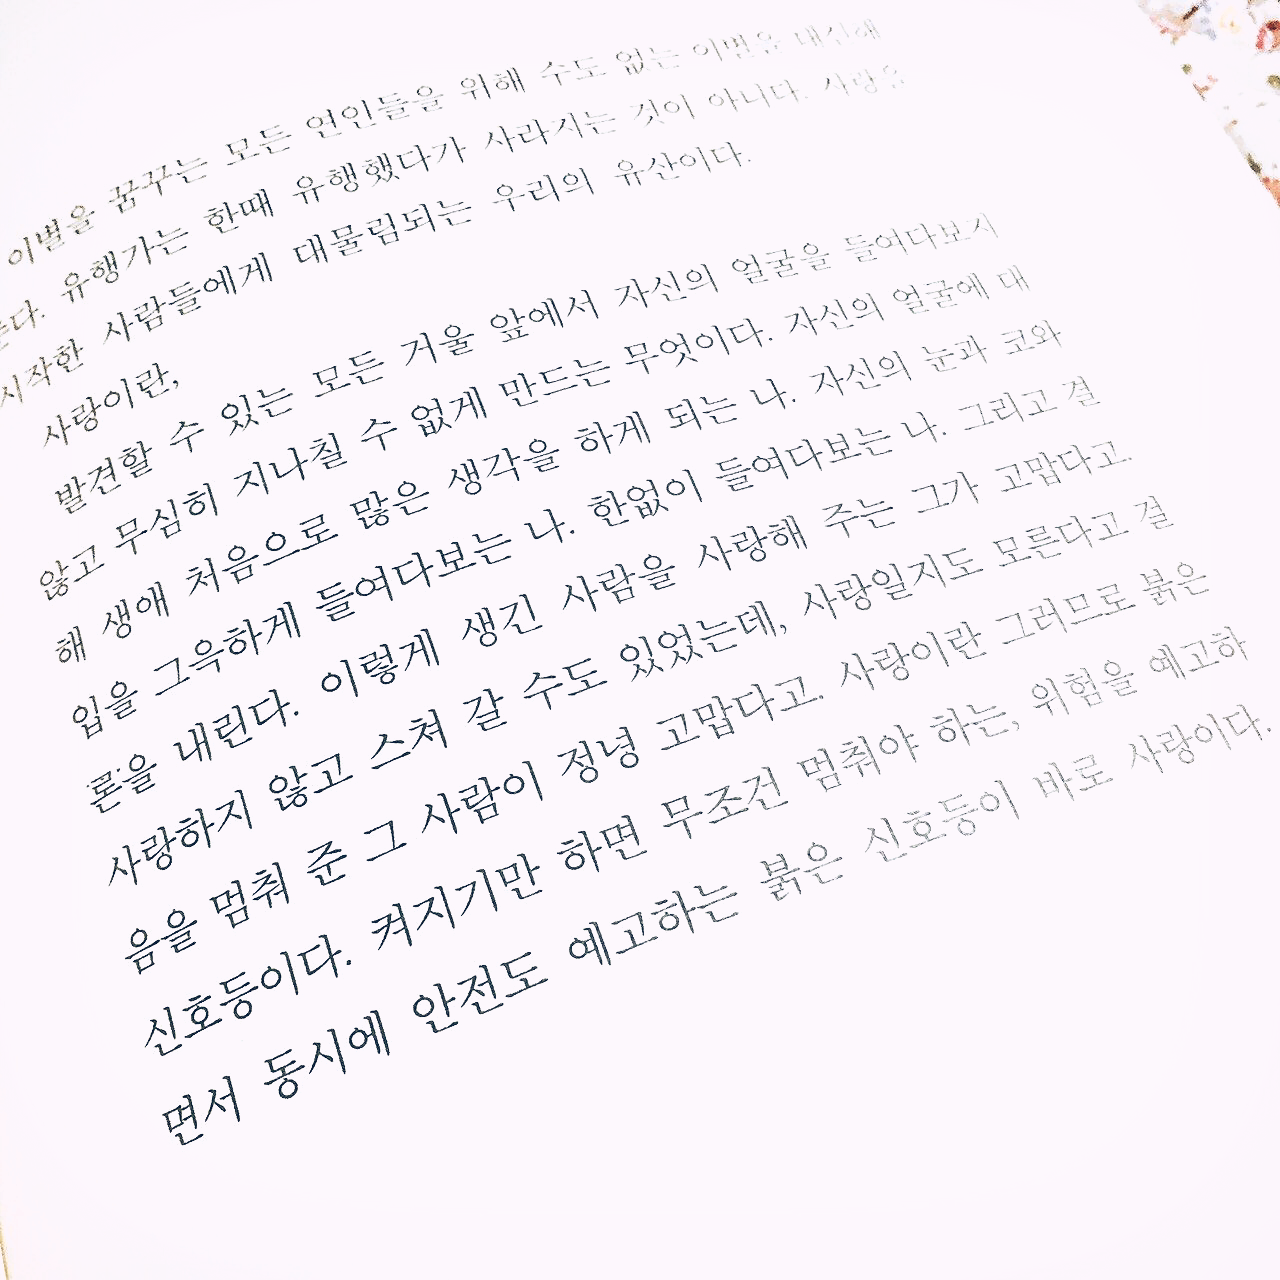 이별을 꿈꾸는 모든 연인들을 위해 수도 없는 이별을 대신해
다. 유행가는 한때 유행했다가 사라지는 것이 아니다. 사랑을
시작한 사람들에게 대물림되는 우리의 유산이다.
사랑이란,
발견할 수 있는 모든 거울 앞에서 자신의 얼굴을 들여다보지
않고 무심히 지나칠 수 없게 만드는 무엇이다. 자신의 얼굴에 대
해 생애 처음으로 많은 생각을 하게 되는 나. 자신의 눈과 코와
입을 그윽하게 들여다보는 나. 한없이 들여다보는 나. 그리고 결
론을 내린다. 이렇게 생긴 사람을 사랑해 주는 그가 고맙다고.
사랑하지 않고 스쳐 갈 수도 있었는데, 사랑일지도 모른다고 걸
음을 멈춰 준 그 사람이 정녕 고맙다고. 사랑이란 그러므로 붉은
신호등이다. 켜지기만 하면 무조건 멈춰야 하는, 위험을 예고하
면서 동시에 안전도 예고하는 붉은 신호등이 바로 사랑이다.